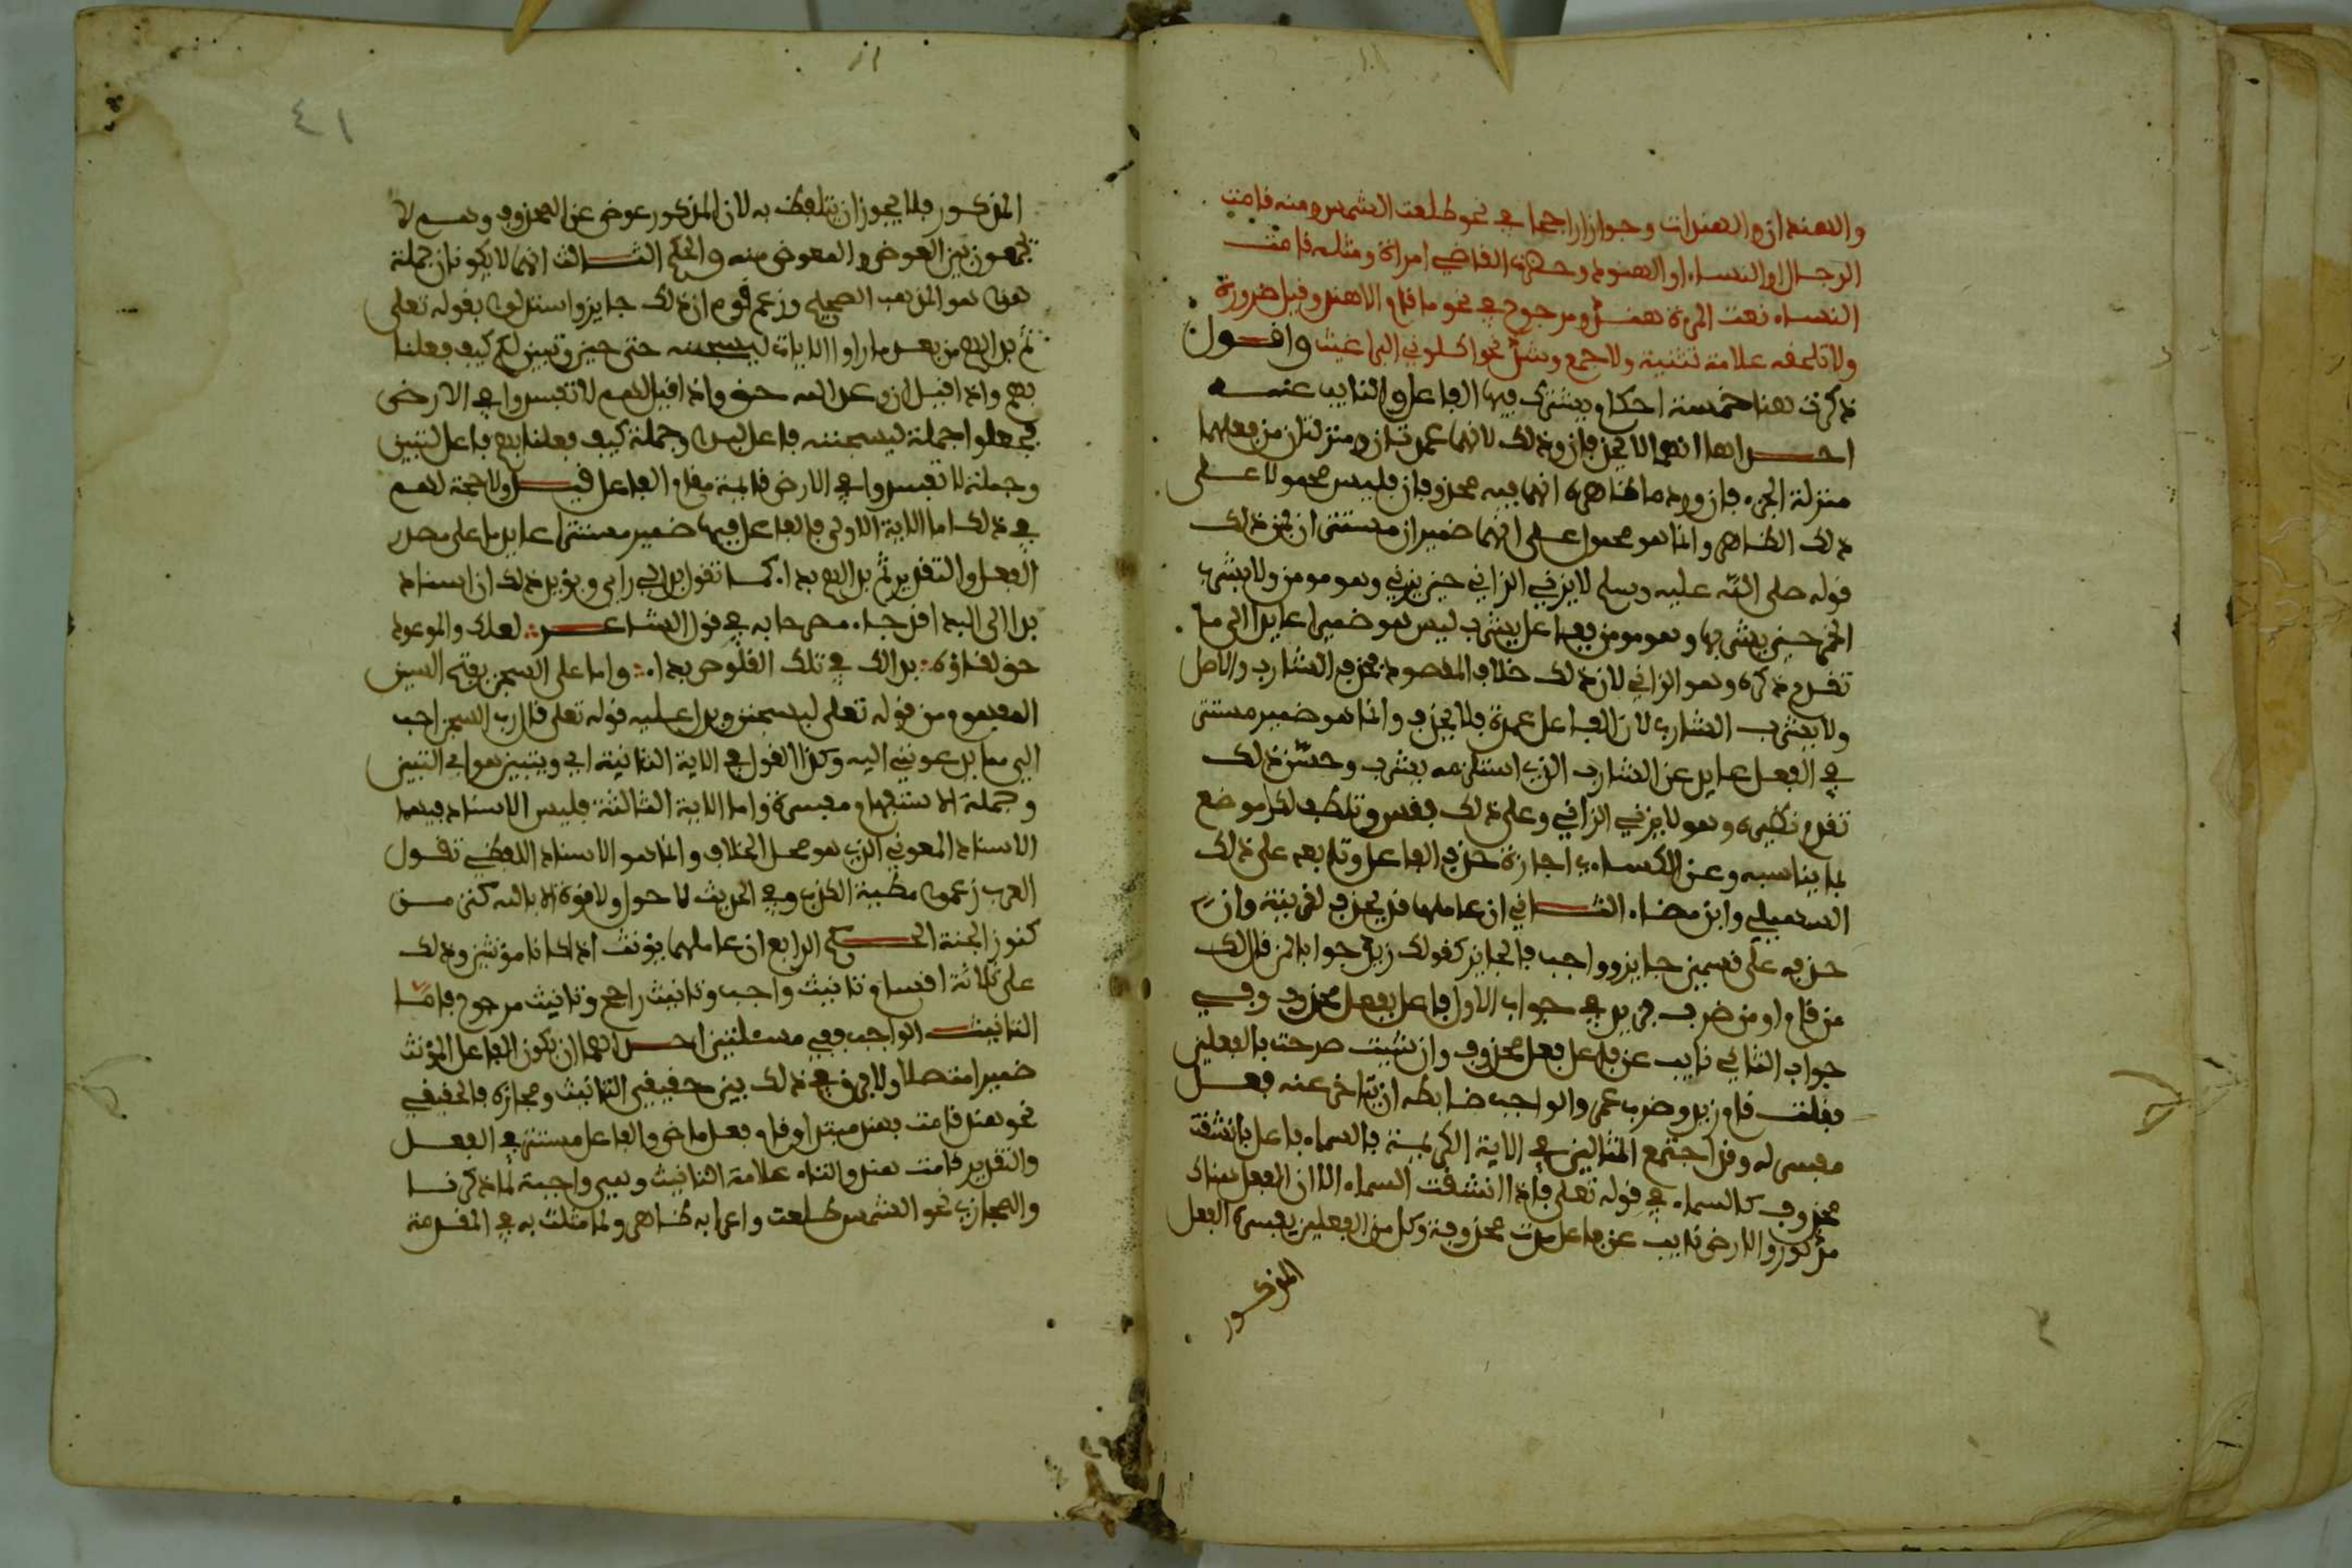 والهندان والهندات وجوازا راجحا في نحو طلعت الشمس ومنه قامت
الرجال او النساء او الهنود وحضرت القاضي امراة ومثله قامت
النساء نعمت المرة هند ومرجوح في نحو ما قام الا هند وقيل ضرورة
ولا تلحقه علامة تثنية ولا جمع وشذ نحو اكلوني البراغيث واقول
ذكرت هنا خمسة احكام يشترك فيها الفاعل والنايب عنه
احداها انهما لا يحذفان وذلك لانهما عمدتان ومنزلان من فعلهما
منزلة الجزء فان ورد ما ظاهره انهما فيه محذوفان فليس محمولا على
ذلك الظاهر وانما هو محمول على انهما ضميران مستتران فمن ذلك
قوله صلى الله عليه وسلم لا يزني الزاني حين يزني وهو مومن ولا يشرب
الخمر حين يشربها وهو مومن ففاعل يشرب ليس هو ضميرا عايدا الى ما
تقدم ذكره وهو الزاني لان ذلك خلاف المقصود فحذف الشارب والاصل
ولا يشرب الشارب لان الفاعل عمدة فلا يحذف وانما هو ضمير مستتر
في الفعل عايد عن الشارب الذي استلزمه يشرب وحسّن ذلك
تقدم نظيره وهو لا يزني الزاني وعلى ذلك فقس وتلطف لكل موضع
بما يناسبه وعن الكساءي اجازة حذف الفاعل وتابعه على ذلك
السهيلي وابن مضاء الثاني ان عاملهما قد يحذف لقرينة وان
حذفه على قسمين جايز وواجب فالجايز كقولك زيد جوابا لمن قال لك
من قام او من ضرب فزيد في جواب الاول فاعل بفعل محذوف وفي
جواب الثاني نايب عن فاعل فعل محذوف وان شيت صرحت بالفعلين
فقلت قام زيد وضرب عمر والواجب ضابطه ان يتاخر عنه فعل
مفسر له وقد اجتمع المثالين في الاية الكريمة فالسماء فاعل بانشقت
محذوف كالسماء في قوله تعلى فاذا انشقت السماء الا ان الفعل هناك
مذكور والارض نايب عن فاعل مدت محذوفة وكل من الفعلين يفسره الفعل
المذكور
٤١
المذكور فلا يجوز ان يتلفظ به لان المذكور عوض عن المحذوف وهم لا
يجمعون بين العوض والمعوض منه والحكم الثالث انهما لا يكونان جملة
هذا هو المذهب الصحيح وزعم قوم ان ذلك جايز واستدلوا بقوله تعلى
ثم بدا لهم من بعد ما راوا الايات ليسجننه حتى حين وتبين لكم كيف فعلنا
بهم واذا قيل ان وعد الله حق واذا قيل لهم لا تفسدوا في الارض
فجعلوا جملة ليسجننه فاعل لبدا وجملة كيف فعلنا بهم فاعل لتبين
وجملة لا تفسدوا في الارض قايمة مقام الفاعل قيل ولا حجة لهم
في ذلك اما الاية الاولى فالفاعل فيها ضمير مستتر عايد ما على مصدر
الفعل والتقدير ثم بدا لهم بداء كما تقول بدا لي راي ويؤيد ذلك ان اسناد
بدا الى البداء قد جاء مصرحا به في قول الشاعر لعلك والموعود
حق لقاؤه بدا لك في تلك القلوص بداء واما على السجن بفتح السين
المفهوم من قوله تعلى ليسجنن ويدل عليه قوله تعلى قال رب السجن احب
الي مما يدعونني اليه وكذا القول في الاية الثانية اي ويتبين هو اي التبين
وجملة الاستفهام مفسرة واما الاية الثالثة فليس الاسناد فيها
الاسناد المعنوي الذي هو محل الخلاف وانما هو الاسناد اللفظي تقول
العرب زعموا مطية الكذب وفي الحديث لا حول ولا قوة الا بالله كنز من
كنوز الجنة الحكم الرابع ان عاملهما يؤنث اذا كانا مؤنثين وذلك
على ثلاثة اقسام تانيث واجب وتانيث راجح وتانيث مرجوح فاما
التانيث الواجب ففي مسئلتين احداهما ان يكون الفاعل المؤنث
ضميرا متصلا ولا فرق في ذلك بين حقيقي التانيث ومجازه فالحقيقي
نحو هند قامت فهند مبتدا وقام فعل ماض والفاعل مستتر في الفعل
والتقدير قامت هند والتاء علامة التانيث وهي واجبة لما ذكرنا
والمجازي نحو الشمس طلعت واعرابه ظاهر ولما مثلت به في المقدمة